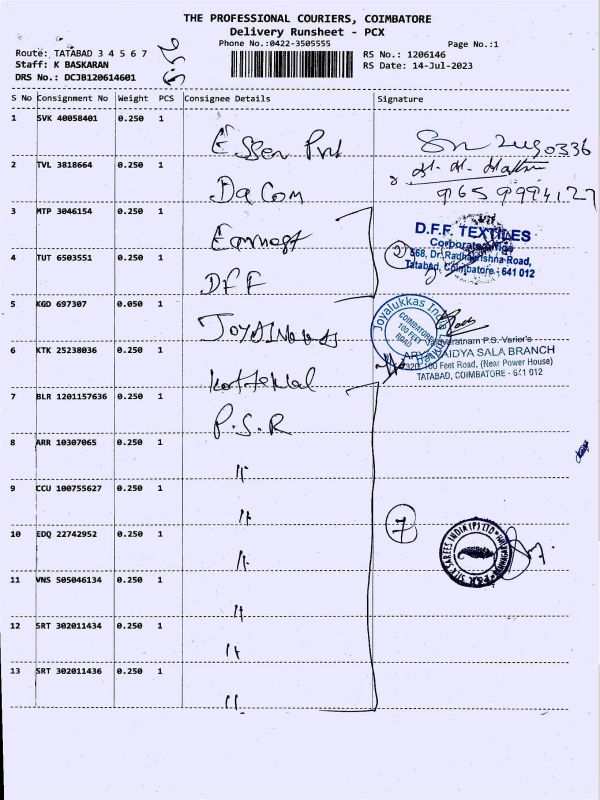 THE PROFESSIONAL COURIERS, COIMBATORE
Delivery Runsheet - PCX
Phone No.:0422-3505555 Page No.:1
Route: TATABAD 3 4 5 6 7 RS No.: 1206146
Staff: K BASKARAN RS Date: 14-Jul-2023
DRS No.: DCJB120614601
S No Consignment No Weight PCS Consignee Details Signature
1 SVK 40058401 0.250 1
Essen Pvt
2 TVL 3818664 0.250 1
Da Com 9659994127
3 MTP 3046154 0.250 1
Earnest
D.F.F. TEXTILES
Corporate Office
568, Dr. Radhakrishna Road,
Tatabad, Coimbatore - 641 012
4 TUT 6503551 0.250 1
DFF
2
5 KGD 697307 0.050 1
Joyalukkas
COIMBATORE
100 FEET
ROAD
6 KTK 25238036 0.250 1
Kottakkal
Vaidyaratnam P.S. Varier's
ARYA VAIDYA SALA BRANCH
100 Feet Road, (Near Power House)
TATABAD, COIMBATORE - 641 012
7 BLR 1201157636 0.250 1
P.S.R
8 ARR 10307065 0.250 1
〃
9 CCU 100755627 0.250 1
〃
7
10 EDQ 22742952 0.250 1
〃
P.S.R SILK SAREES INDIA (P) LTD
11 VNS 505046134 0.250 1
〃
12 SRT 302011434 0.250 1
〃
13 SRT 302011436 0.250 1
〃